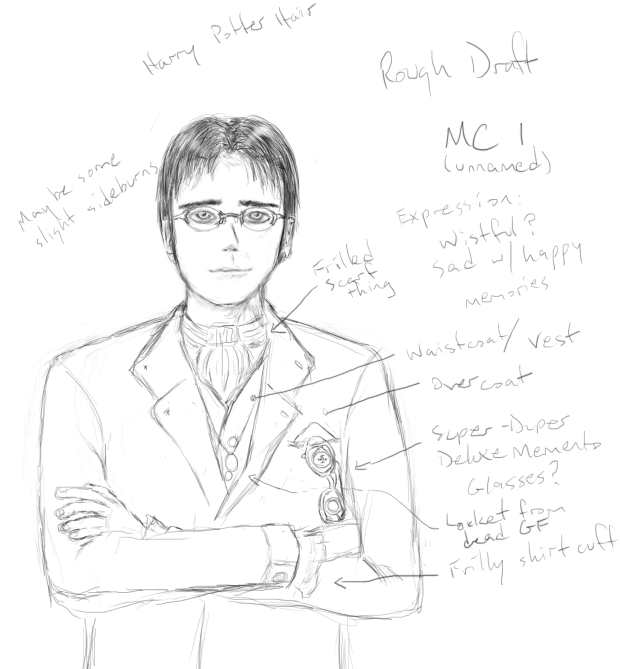 Harry Potter Hair
Rough Draft
MC 1
(unnamed)
Maybe some
slight sideburns
Expression:
Wistful?
Sad w/ happy
memories
Frilled
scarf
thing
Waistcoat/Vest
Overcoat
Super-Duper
Deluxe Memento
Glasses?
Locket from
dead GF
Frilly shirt cuff